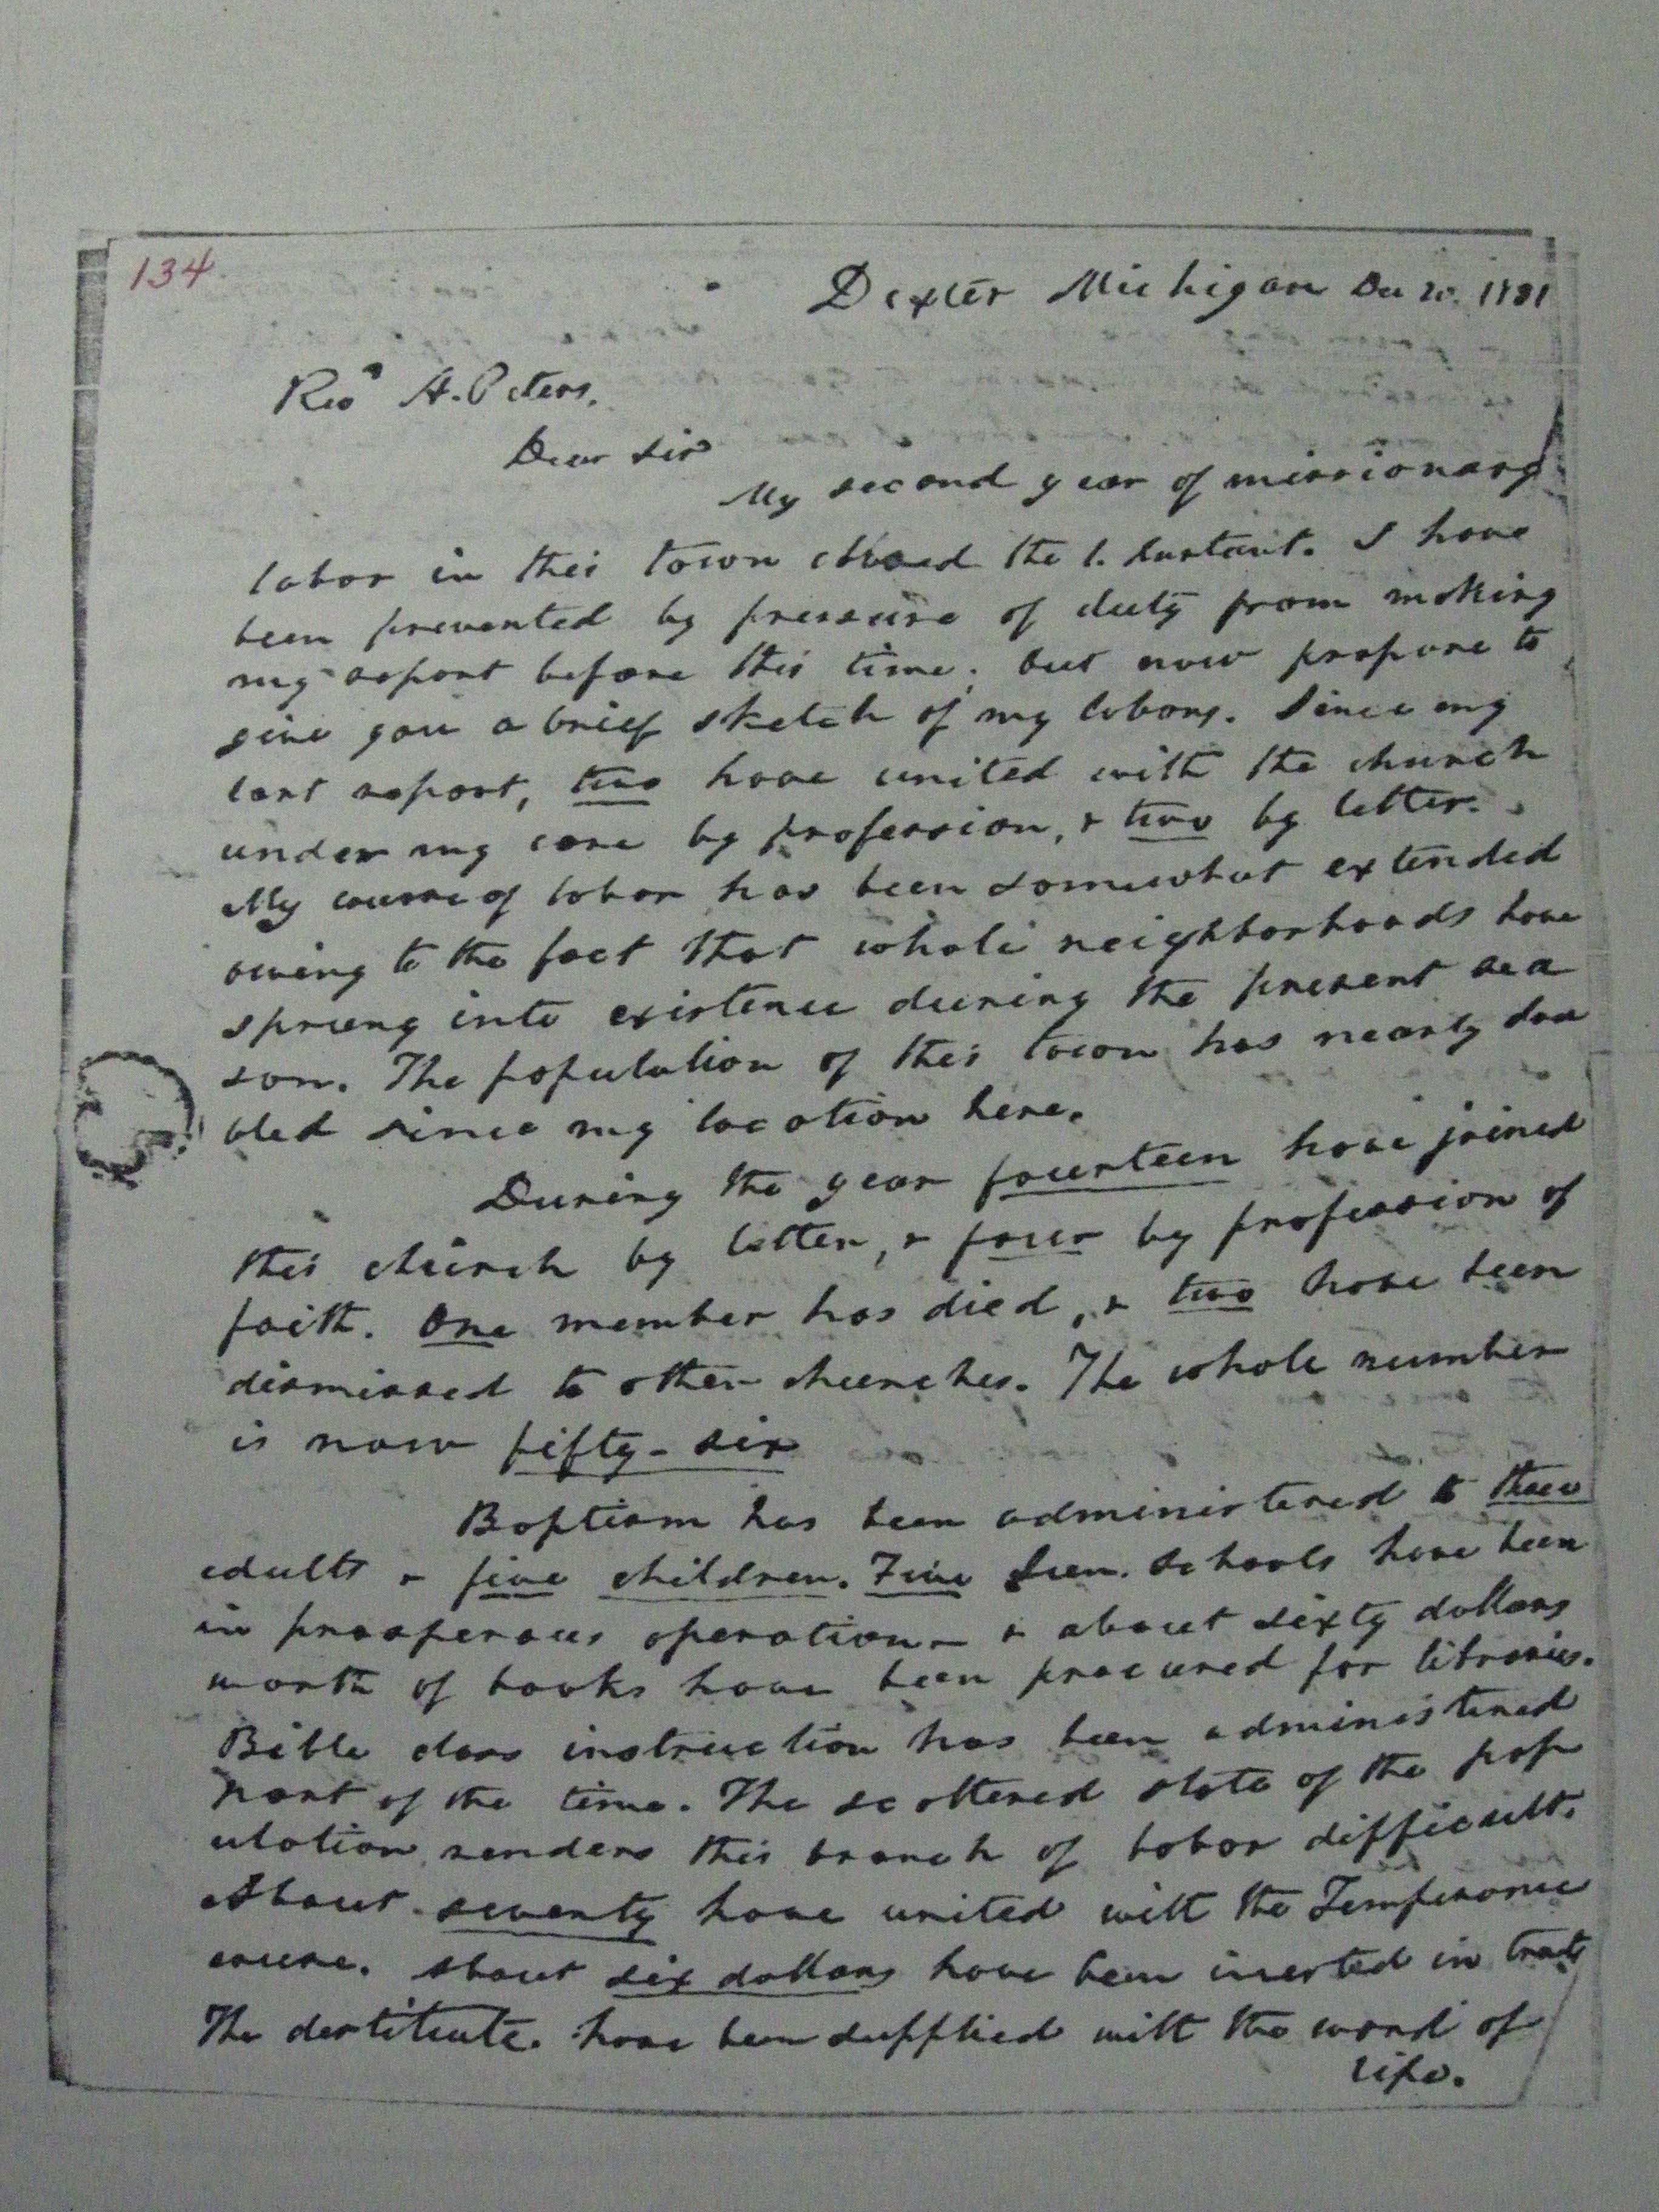 134
Dexter Michigan Dec 20. 1831
Revd A. Peters.
Dear Sir
My second year of missionary
labor in this town closed the 1. Instant. I have
been prevented by pressure of duty from making
my report before this time; but now prepare to
give you a brief sketch of my labors. Since my
last report, two have united with the church
under my care by profession, & two by letter.
My course of labor has been somewhat extended
owing to the fact that whole neighborhoods have
sprung into existence during the present sea
son. The population of this town has nearly dou
bled since my location here.
During the year fourteen have joined
this church by letter, & four by profession of
faith. One member has died, & two have been
dismissed to other churches. The whole number
is now fifty-six
Baptism has been administered to three
adults & five children. Five Sun. Schools have been
in prosperous operation & about sixty dollars
worth of books have been procured for libraries.
Bible class instruction has been administered
part of the time. The scattered state of the pop
ulation renders this branch of labor difficult.
About seventy have united with the Temperance
cause. About six dollars have been invested in tracts
The destitute have been supplied with the word of
life.